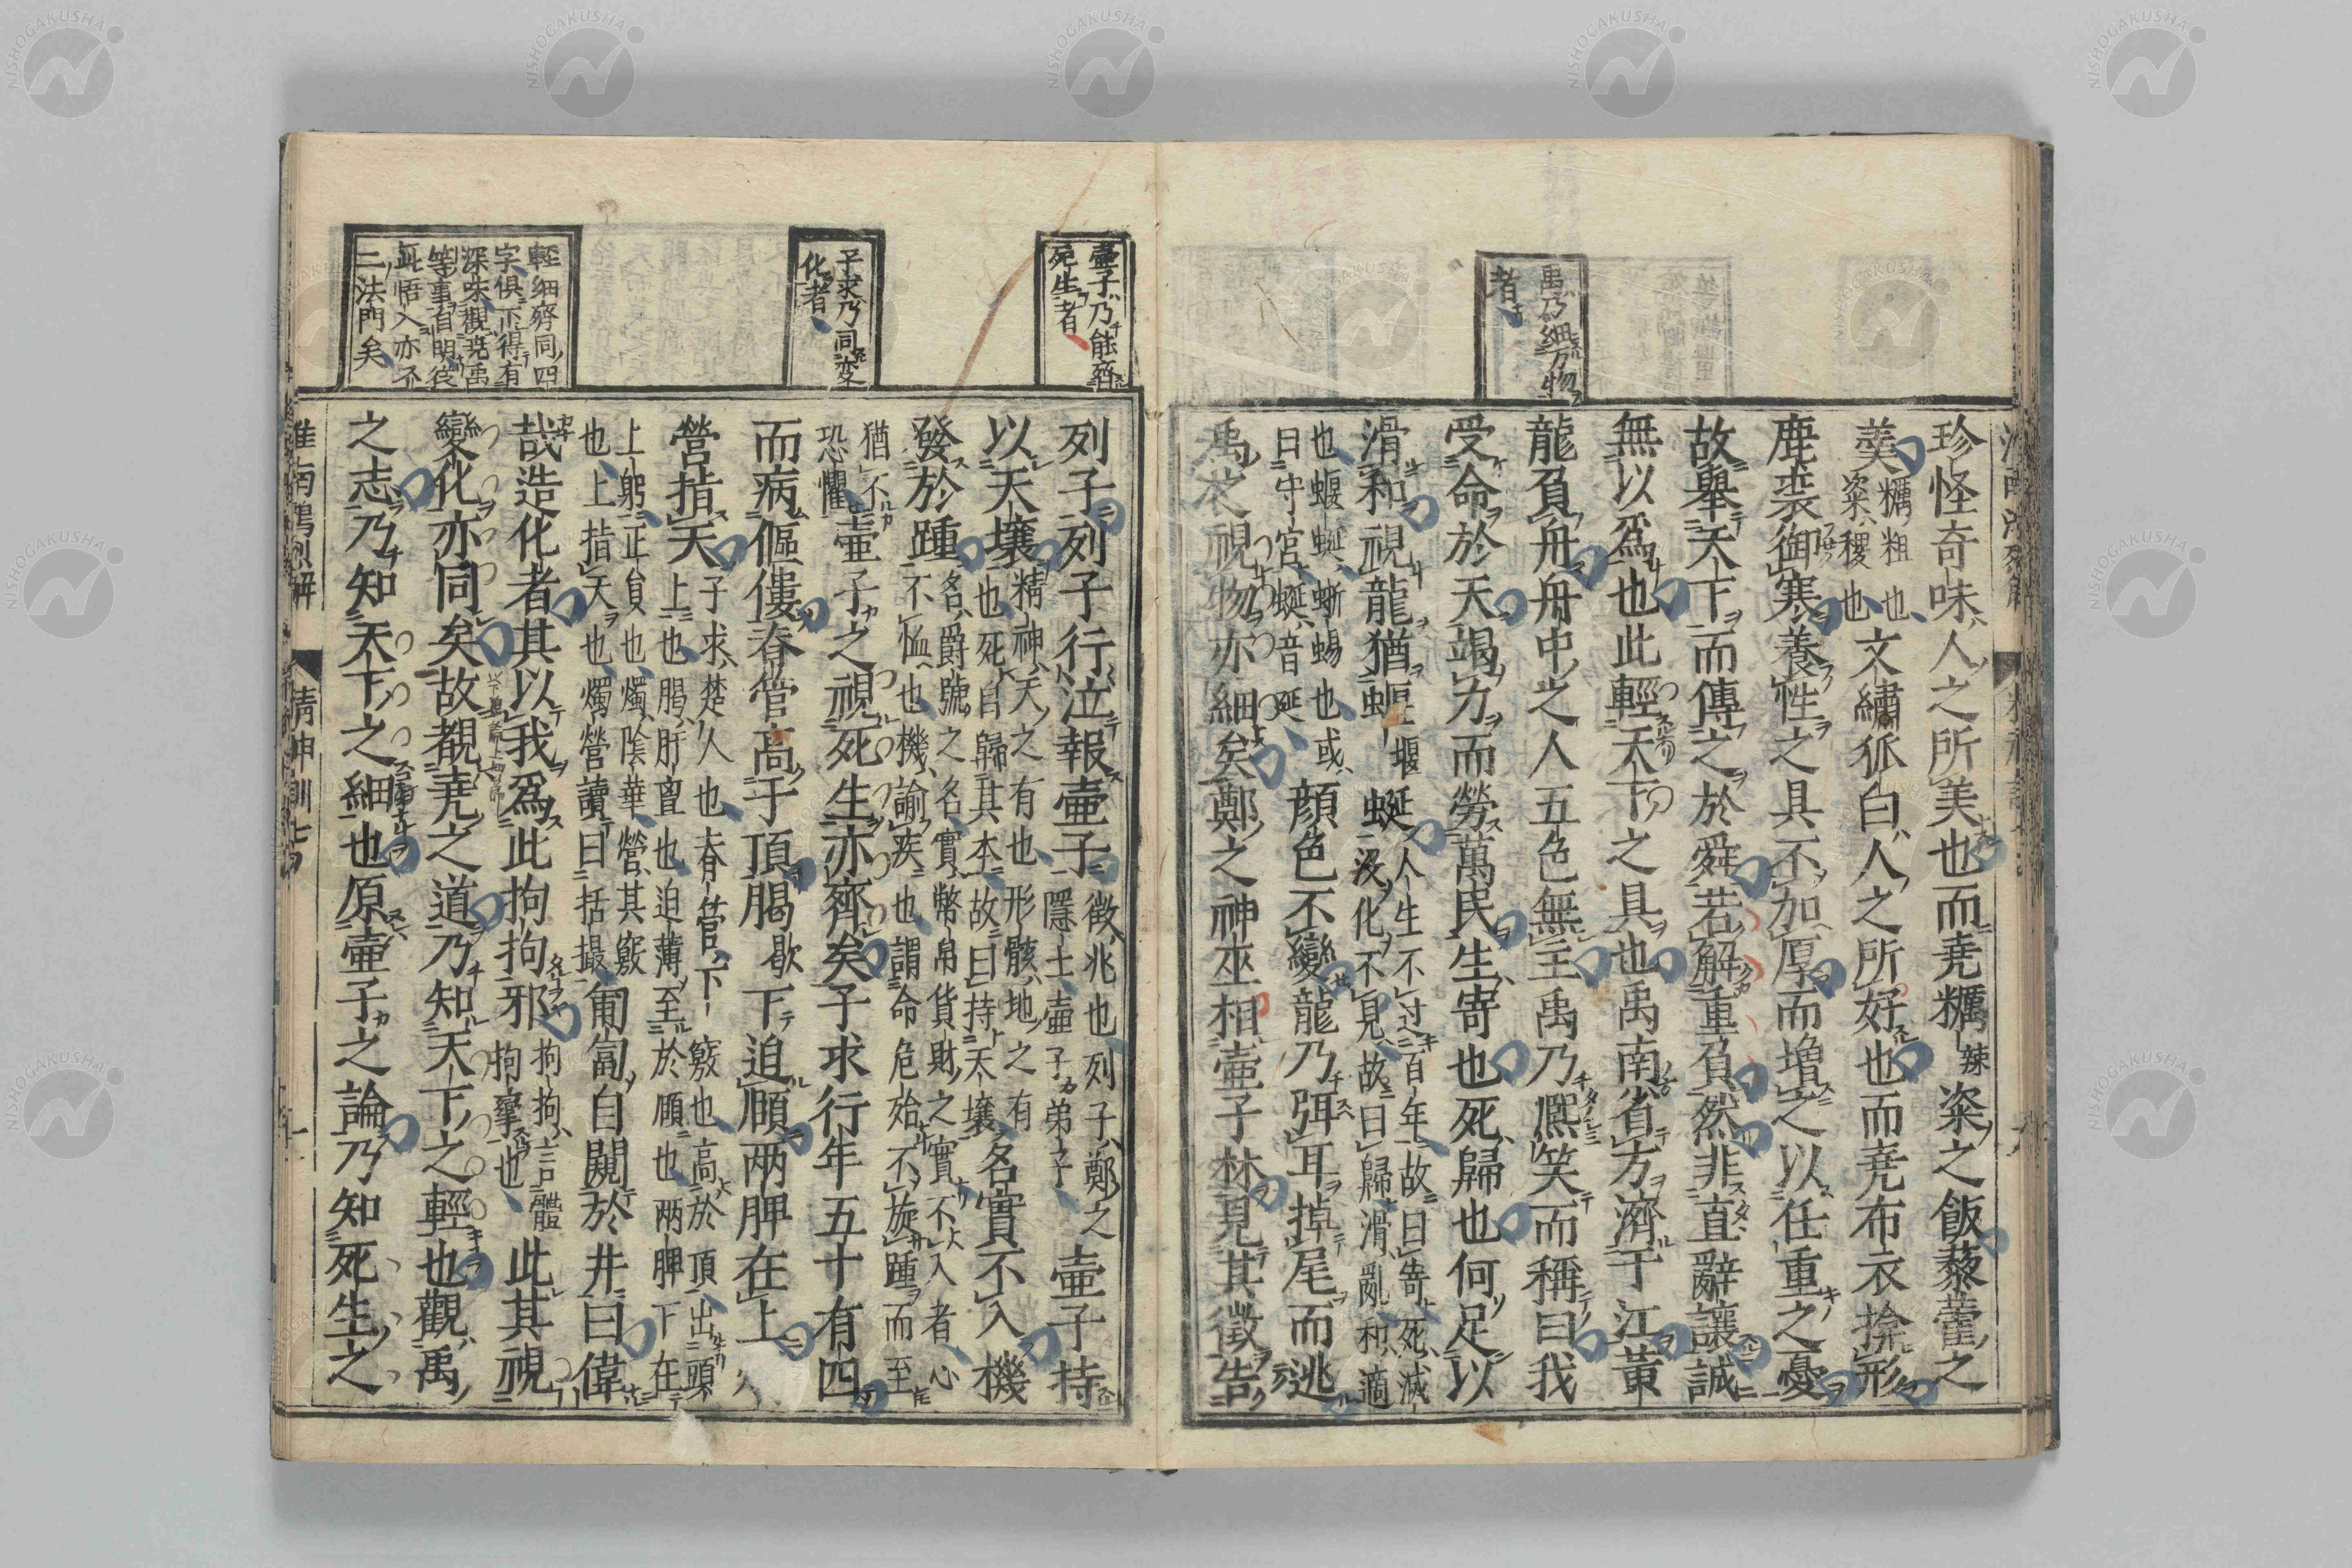 珍怪奇味人之所美也而堯糲辣粢之飯藜藿之
羹糲粗也粢稷也文繡狐白人之所好也而堯布衣揜形
鹿裘御寒養性之具不加厚而增之以任重之憂
故舉天下而傳之於舜若解重負然非直辭讓誠
無以爲也此輕天下之具也禹南省方濟于江黃
龍負舟舟中之人五色無主禹乃熈笑而稱曰我
受命於天竭力而勞萬民生寄也死歸也何足以
滑和視龍猶蝘堰蜒人生不过百年故曰寄死滅没化不見故曰歸滑亂和適
也蝘蜒蜥蜴也或曰守宮蜒音延顔色不變龍乃弭耳掉尾而逃
禹之視物亦細矣鄭之神巫相壷子林見其徵告
禹乃細万物
者
列子列子行泣報壷子徵兆也列子鄭之隱士壷子弟子壷子持
以天壤精神天之有也形骸地之有也死自歸其本故曰持天壤名實不入機
發於踵名爵號之名實幣帛貨財之實不入者心不恤也機諭疾也謂命危殆不旋踵而至
猶不恐懼壷子之視死生亦齊矣子求行年五十有四
而病傴僂脊管高于頂䐛歇下迫頤兩脾在上
營指天子求楚人也脊管下竅也高於頂出頭上也䐛肝亶也迫薄至於頤也兩脾下在
上躬正負也燭陰華營其竅也上指天也燭營讀曰括撮匍匐自闚於井曰偉
哉造化者其以我爲此拘拘邪拘拘言體拘攣也此其視
變化亦同矣故覩堯之道乃知天下之輕也觀禹
之志乃知天下之細也原壷子之論乃知死生之
壷子乃能齊
死生者
子求乃同変
化者
輕細齊同四
字俱下得有
深味觀堯禹
等事自明從
此悟入亦不
二法門矣
淮南鴻烈解
精神訓七